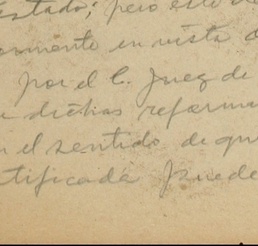 estado; pero este de
ormente en vista d
por el C. Juez de
dichas reforma
n el sentido de qu
tificada puede